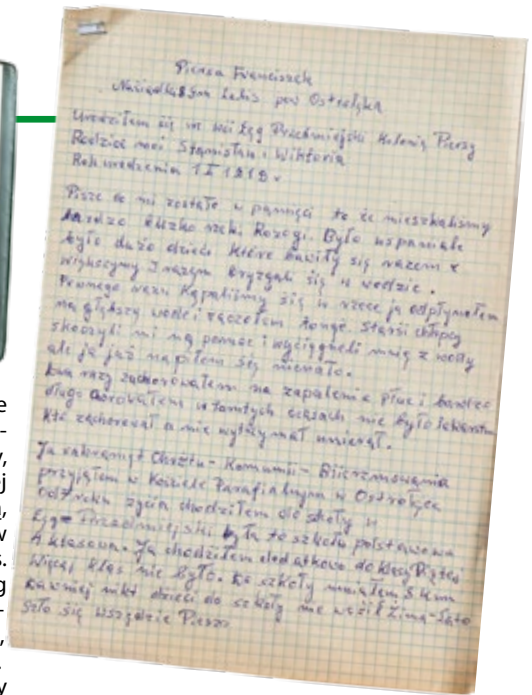 Piersa Franciszek
Nasiadki gm Lelis pow Ostrołęka
Urodziłem się we wsi Łęg Przedmiejski Kolonia Piersy
Rodzice moi Stanisław i Wiktoria
Rok urodzenia 1 I 1919 r
Piszę co mi zostało w pamięci to że mieszkaliśmy
bardzo blizko rzeki Rozogi. Było wspaniale
było dużo dzieci które bawiły się razem z
większymi I razem bryzgali się w wodzie.
Pewnego razu kąpaliśmy się w rzece ja odpłynąłem
na głębszą wodę i zaczołem tonąć. Starsi chłopcy
skoczyli mi na pomoc i wyciągneli mnię z wody
ale ja już napiłem się niemało.
Dwa razy zachorowałem na zapalenie płuc i bardzo
długo chorowałem w tamtych czasach nie było lekarstw
Kto zachorował a nie wytrzymał umierał.
Ja sakrament Chrztu - Komunii - Bierzmowania
przyjąłem w Kościele Parafialnym w Ostrołęce
Od roku życia chodziłem do szkoły w
Łęg Przedmiejski była to szkoła podstawowa
4 klasowa. Ja chodziłem dodatkowo do klasy Piątej
więcej klas nie było. Do szkoły miałem 3 km
Dawniej nikt dzieci do szkoły nie woził Zima - Lato
szło się wszędzie Pieszo